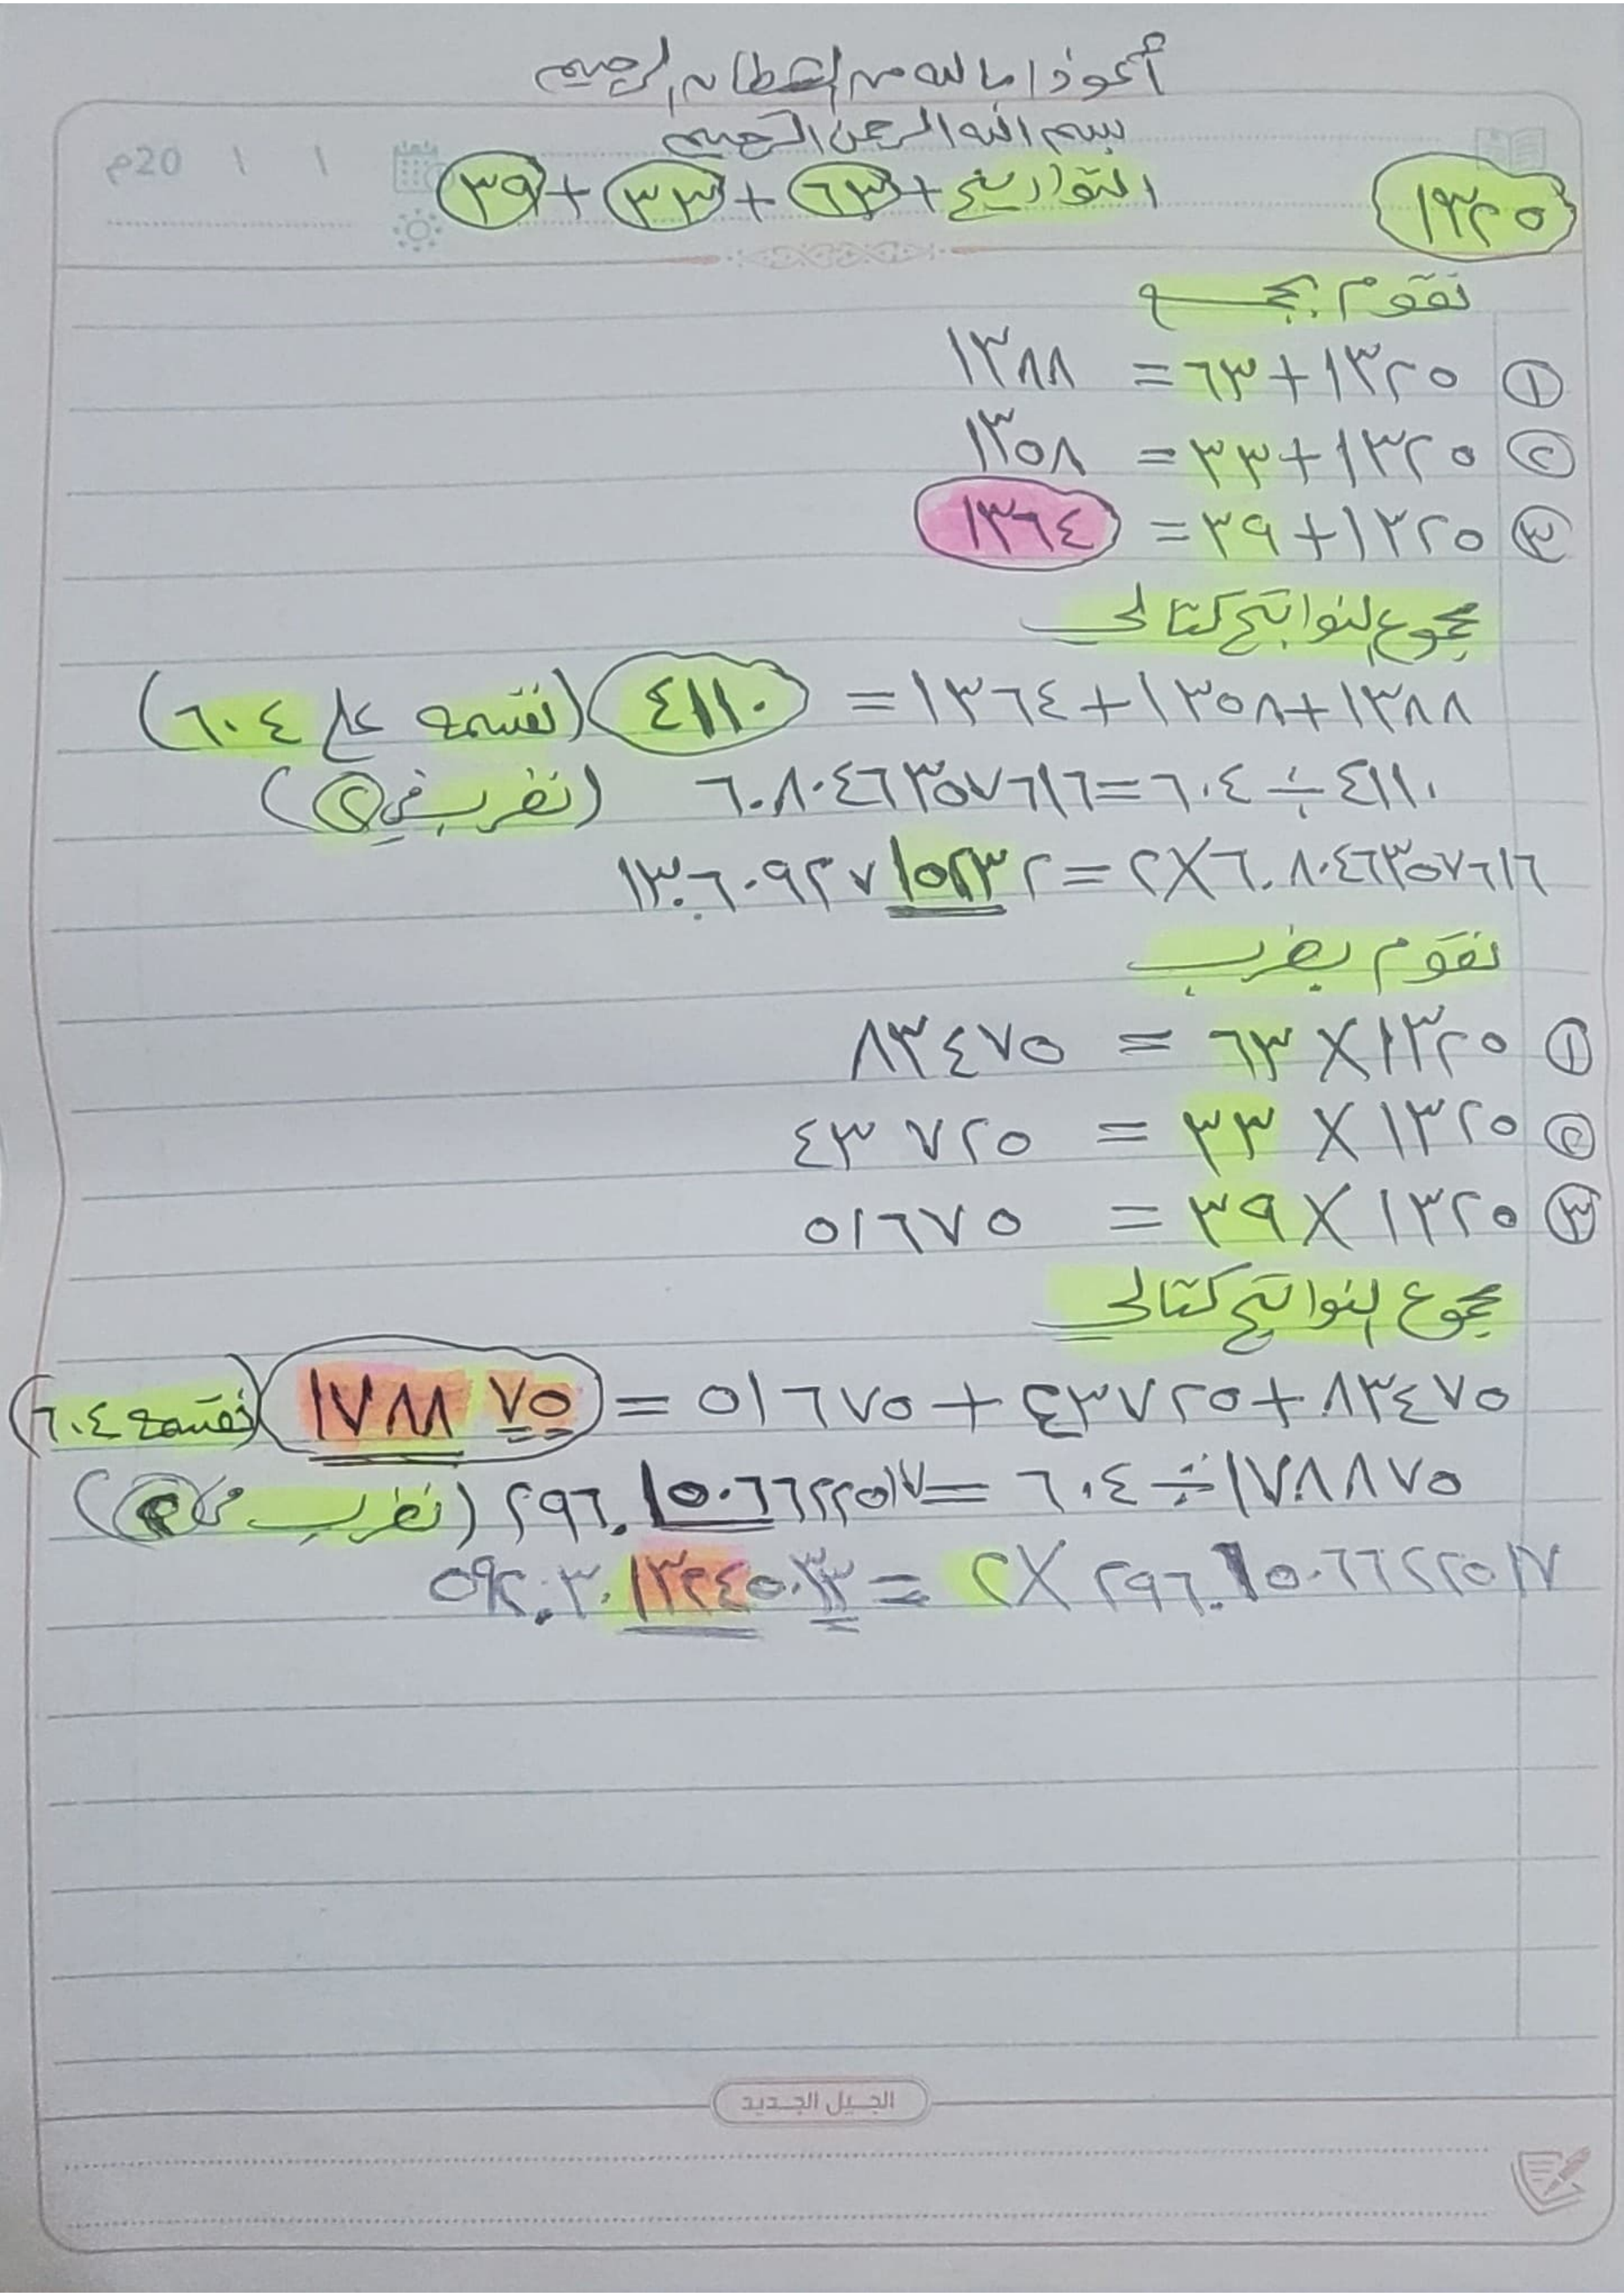 أعوذ بالله من الشيطان الرجيم
بسم الله الرحمن الرحيم
١ ١ 20م
١٣٢٥ التواريخ + ٦٣ + ٣٣ + ٣٩
نقوم بجمع
١ ١٣٢٥ + ٦٣ = ١٣٨٨
٢ ١٣٢٥ + ٣٣ = ١٣٥٨
٣ ١٣٢٥ + ٣٩ = ١٣٦٤
مجموع النواتج كتالي
١٣٨٨ + ١٣٥٨ + ١٣٦٤ = ٤١١٠ (نقسمه على ٦٠٤)
٤١١٠ ÷ ٦٠٤ = ٦.٨٠٤٦٣٥٧٦١٦ (نضرب في ٢)
٦.٨٠٤٦٣٥٧٦١٦ × ٢ = ١٣.٦٠٩٢٧١٥٢٣٢
نقوم بضرب
١ ١٣٢٥ × ٦٣ = ٨٣٤٧٥
٢ ١٣٢٥ × ٣٣ = ٤٣٧٢٥
٣ ١٣٢٥ × ٣٩ = ٥١٦٧٥
مجموع النواتج كتالي
٨٣٤٧٥ + ٤٣٧٢٥ + ٥١٦٧٥ = ١٧٨٨٧٥ (نقسمه ٦٠٤)
١٧٨٨٧٥ ÷ ٦٠٤ = ٢٩٦.١٥٠٦٦٢٢٥١٧ (نضرب في ٢)
٢٩٦.١٥٠٦٦٢٢٥١٧ × ٢ = ٥٩٢.٣٠١٣٢٤٥٠٣٣
الجيل الجديد